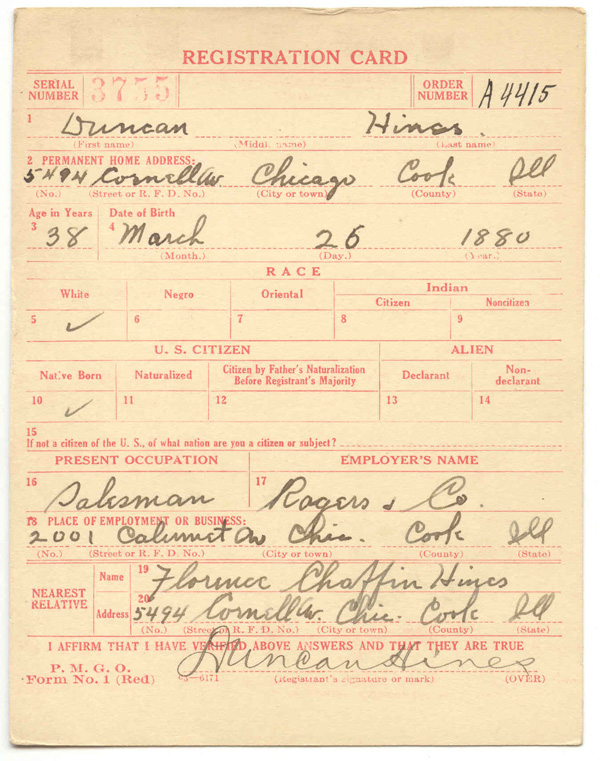 REGISTRATION CARD
SERIAL NUMBER 3755 ORDER NUMBER A 4415
1 Duncan Hines.
(First name) (Middle name) (Last name)
2 PERMANENT HOME ADDRESS:
5494 Cornell Av Chicago Cook Ill
(No.) (Street or R. F. D. No.) (City or town) (County) (State)
Age in Years Date of Birth
3 38 4 March 26 1880
(Month.) (Day.) (Year.)
RACE
White Negro Oriental Indian
Citizen Noncitizen
5 ✓ 6 7 8 9
U. S. CITIZEN ALIEN
Native Born Naturalized Citizen by Father's Naturalization Before Registrant's Majority Declarant Non-declarant
10 ✓ 11 12 13 14
15
If not a citizen of the U. S., of what nation are you a citizen or subject?
PRESENT OCCUPATION EMPLOYER'S NAME
16 Salesman 17 Rogers & Co.
18 PLACE OF EMPLOYMENT OR BUSINESS:
2001 Calumet Av Chic. Cook Ill
(No.) (Street or R. F. D. No.) (City or town) (County) (State)
NEAREST RELATIVE
Name 19 Florence Chaffin Hines
Address 20 5494 Cornell Av. Chic. Cook Ill
(No.) (Street or R. F. D. No.) (City or town) (County) (State)
I AFFIRM THAT I HAVE VERIFIED ABOVE ANSWERS AND THAT THEY ARE TRUE
P. M. G. O.
Form No. 1 (Red) Duncan Hines
(Registrant's signature or mark) (OVER)